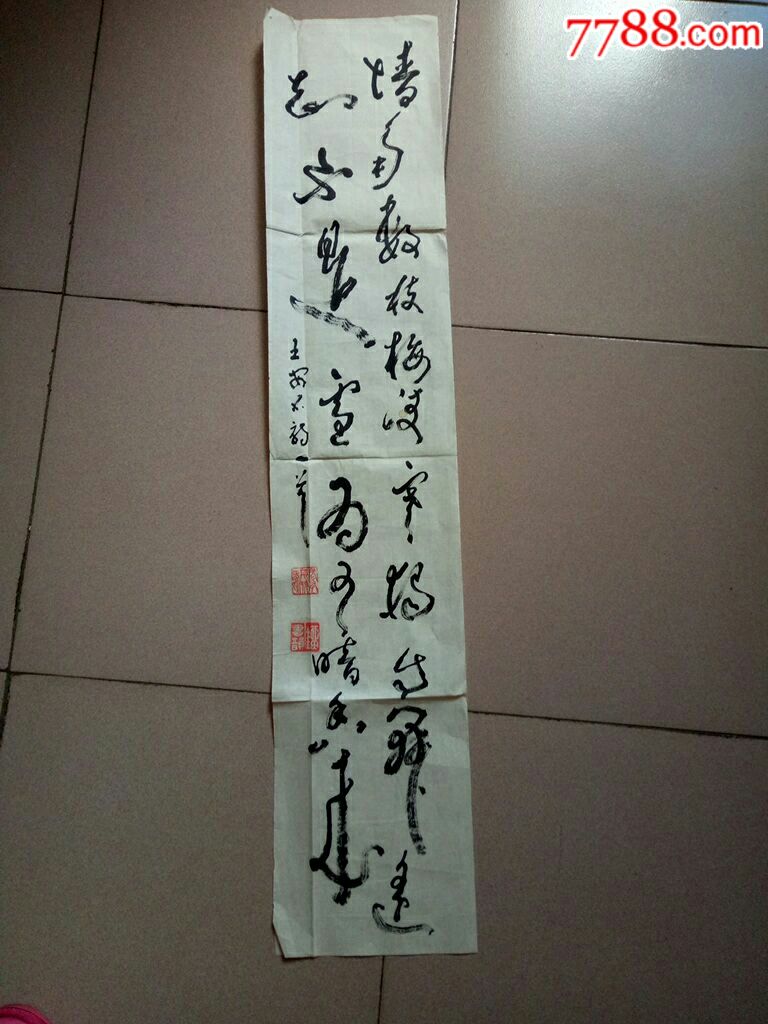 7788.com
墙角数枝梅凌寒独自开遥
知不是雪为有暗香来
王安石诗